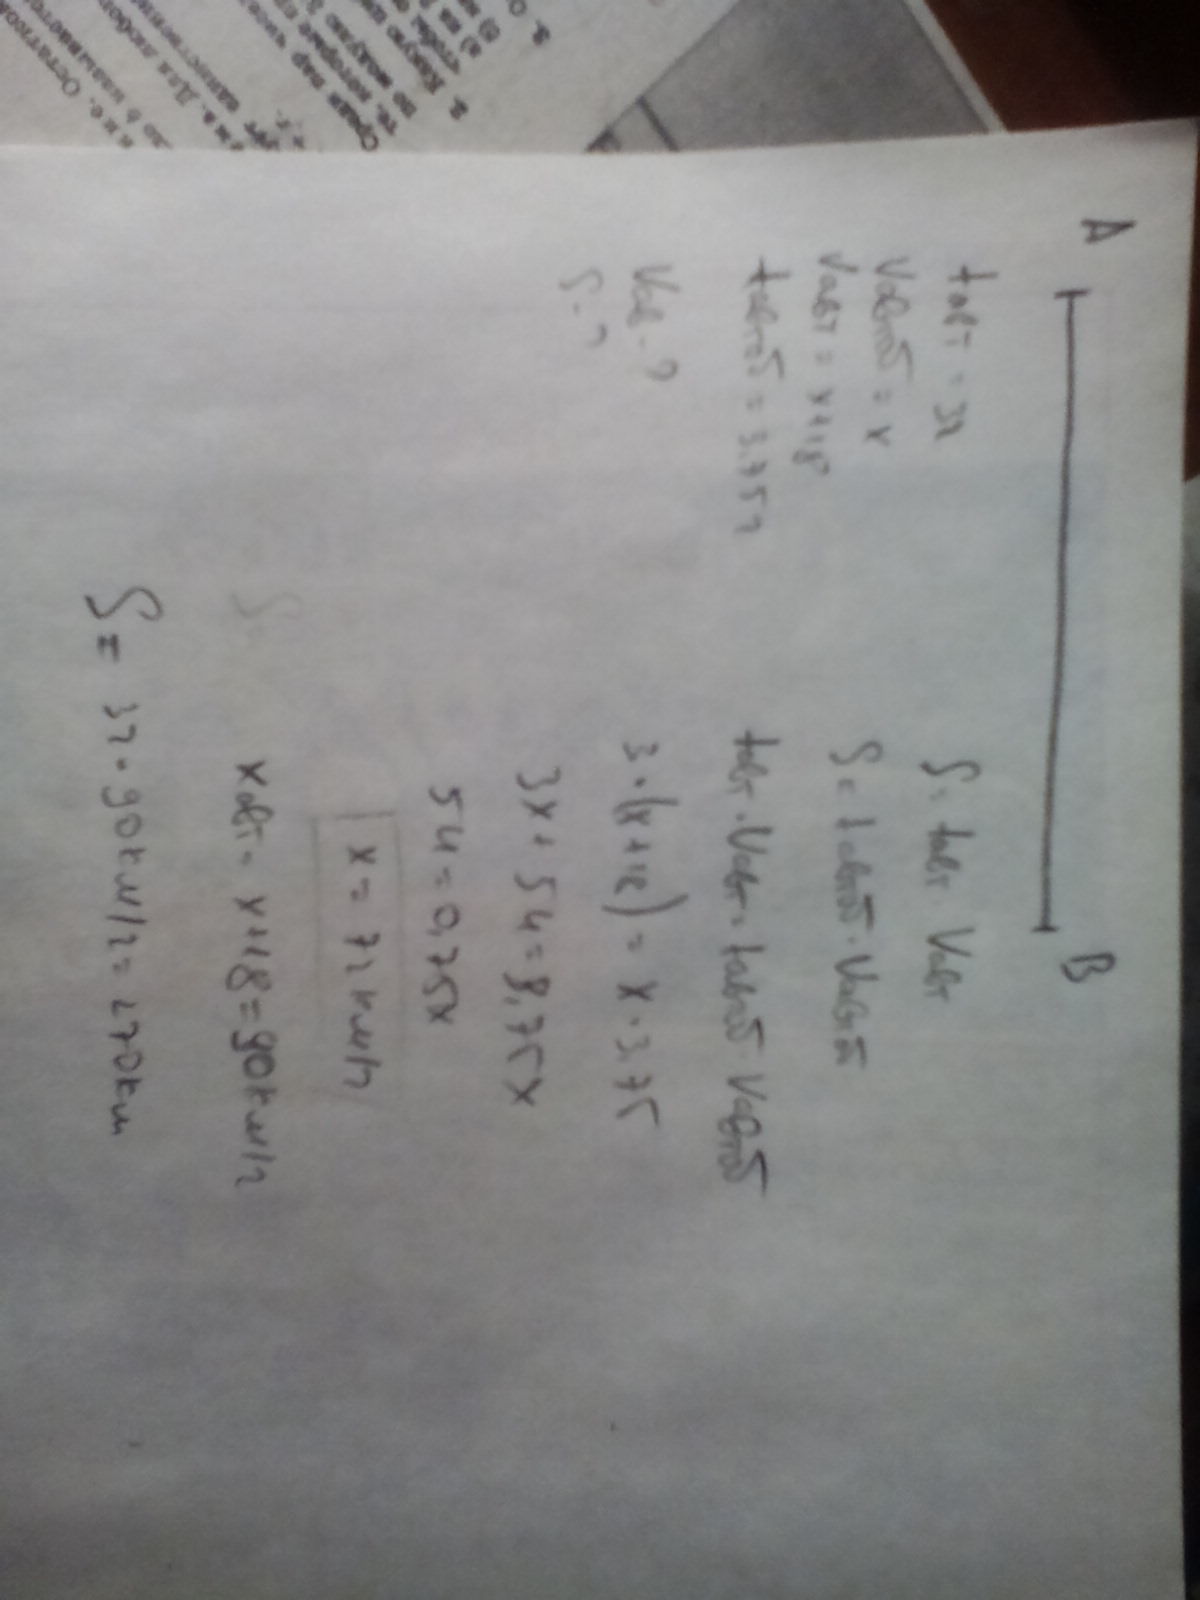 A B
tавт = 3ч
Vавтоб = x
Vавт = x+18
tавтоб = 3.75ч
Vав - ?
S - ?
S = tавт · Vавт
S = tавтоб · Vавтоб
tавт · Vавт = tавтоб · Vавтоб
3·(x+18) = x·3.75
3x + 54 = 3,75x
54 = 0,75x
x = 72 км/ч
xавт = x+18=90км/ч
S = 3ч · 90км/ч = 270км